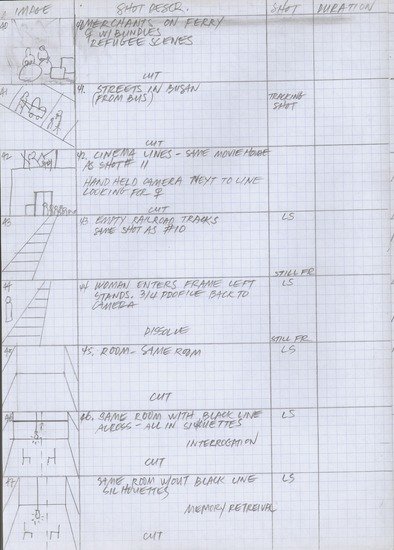 IMAGE SHOT DESCR. SHOT DURATION
MERCHANTS ON FERRY
♀ W/BUNDLES
REFUGEE SCENES
CUT
41
41. STREETS IN BUSAN
(FROM BUS)
TRACKING
SHOT
CUT
42
42. CINEMA LINES – SAME MOVIE HOUSE
AS SHOT # 11
HAND HELD CAMERA NEXT TO LINE
LOOKING FOR ♀
CUT
43
43. EMPTY RAILROAD TRACKS
SAME SHOT AS #10
LS
STILL FR.
44
44 WOMAN ENTERS FRAME LEFT
STANDS. 3/4 PROFILE BACK TO
CAMERA
LS
DISSOLVE
STILL FR.
45
45. ROOM – SAME ROOM
LS
CUT
46
46. SAME ROOM WITH BLACK LINE
ACROSS – ALL IN SILHOUETTES
LS
INTERROGATION
CUT
47
SAME ROOM W/OUT BLACK LINE
SILHOUETTES
LS
MEMORY RETREIVAL
CUT